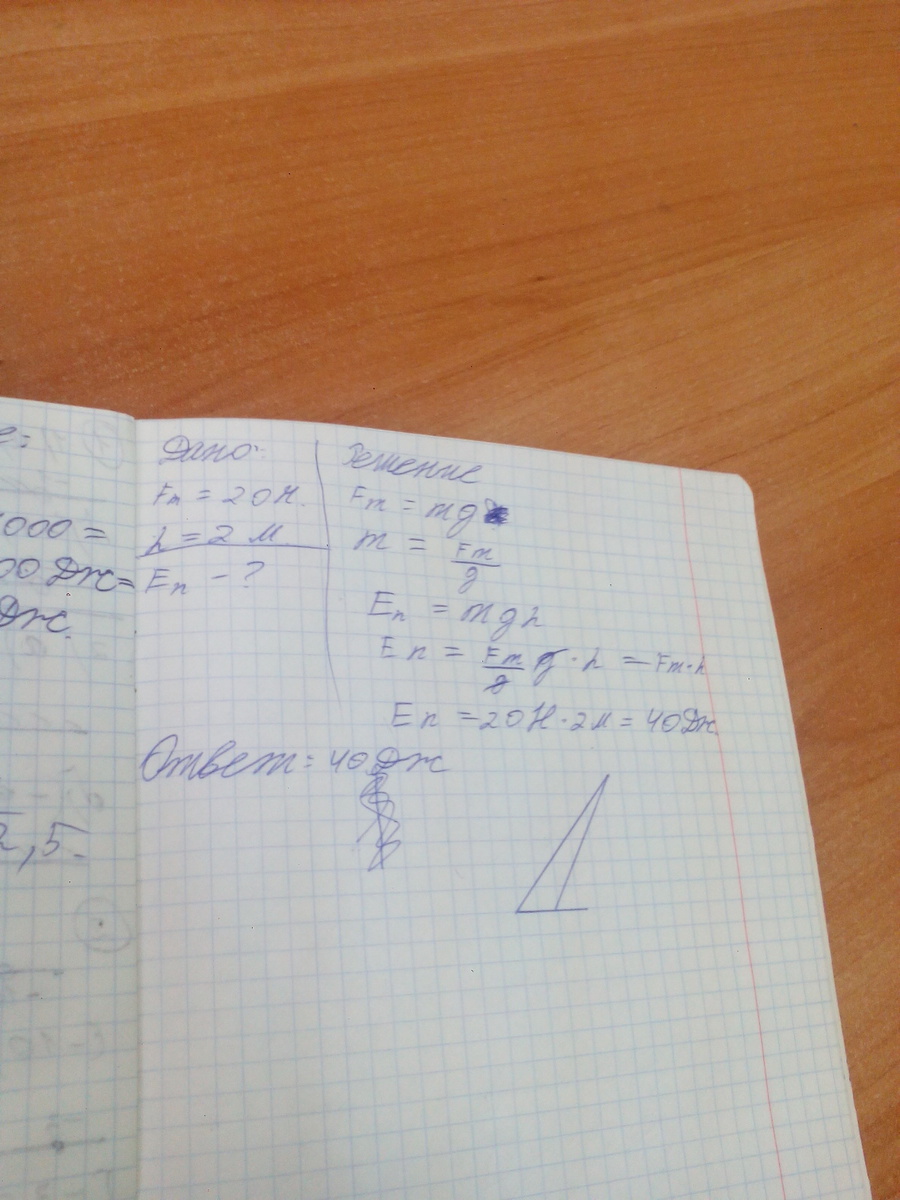 е:
1000 =
00 Дж=
Дж.
2,5
Дано:
Fт = 20Н.
h = 2 м
Еп - ?
Решение
Fт = mg
m = Fт/g
Еп = mgh
Еп = Fт/g g · h = Fт·h
Еп = 20Н · 2м = 40Дж
Ответ: 40Дж